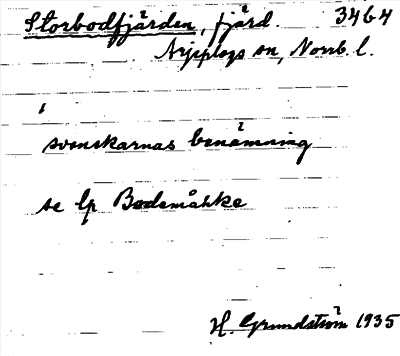 Storbodfjärden, fjärd. 3464
Arjeplogs sn, Norrb. l.
svenskarnas benämning
se lp Bodemåhke
H. Grundström 1935